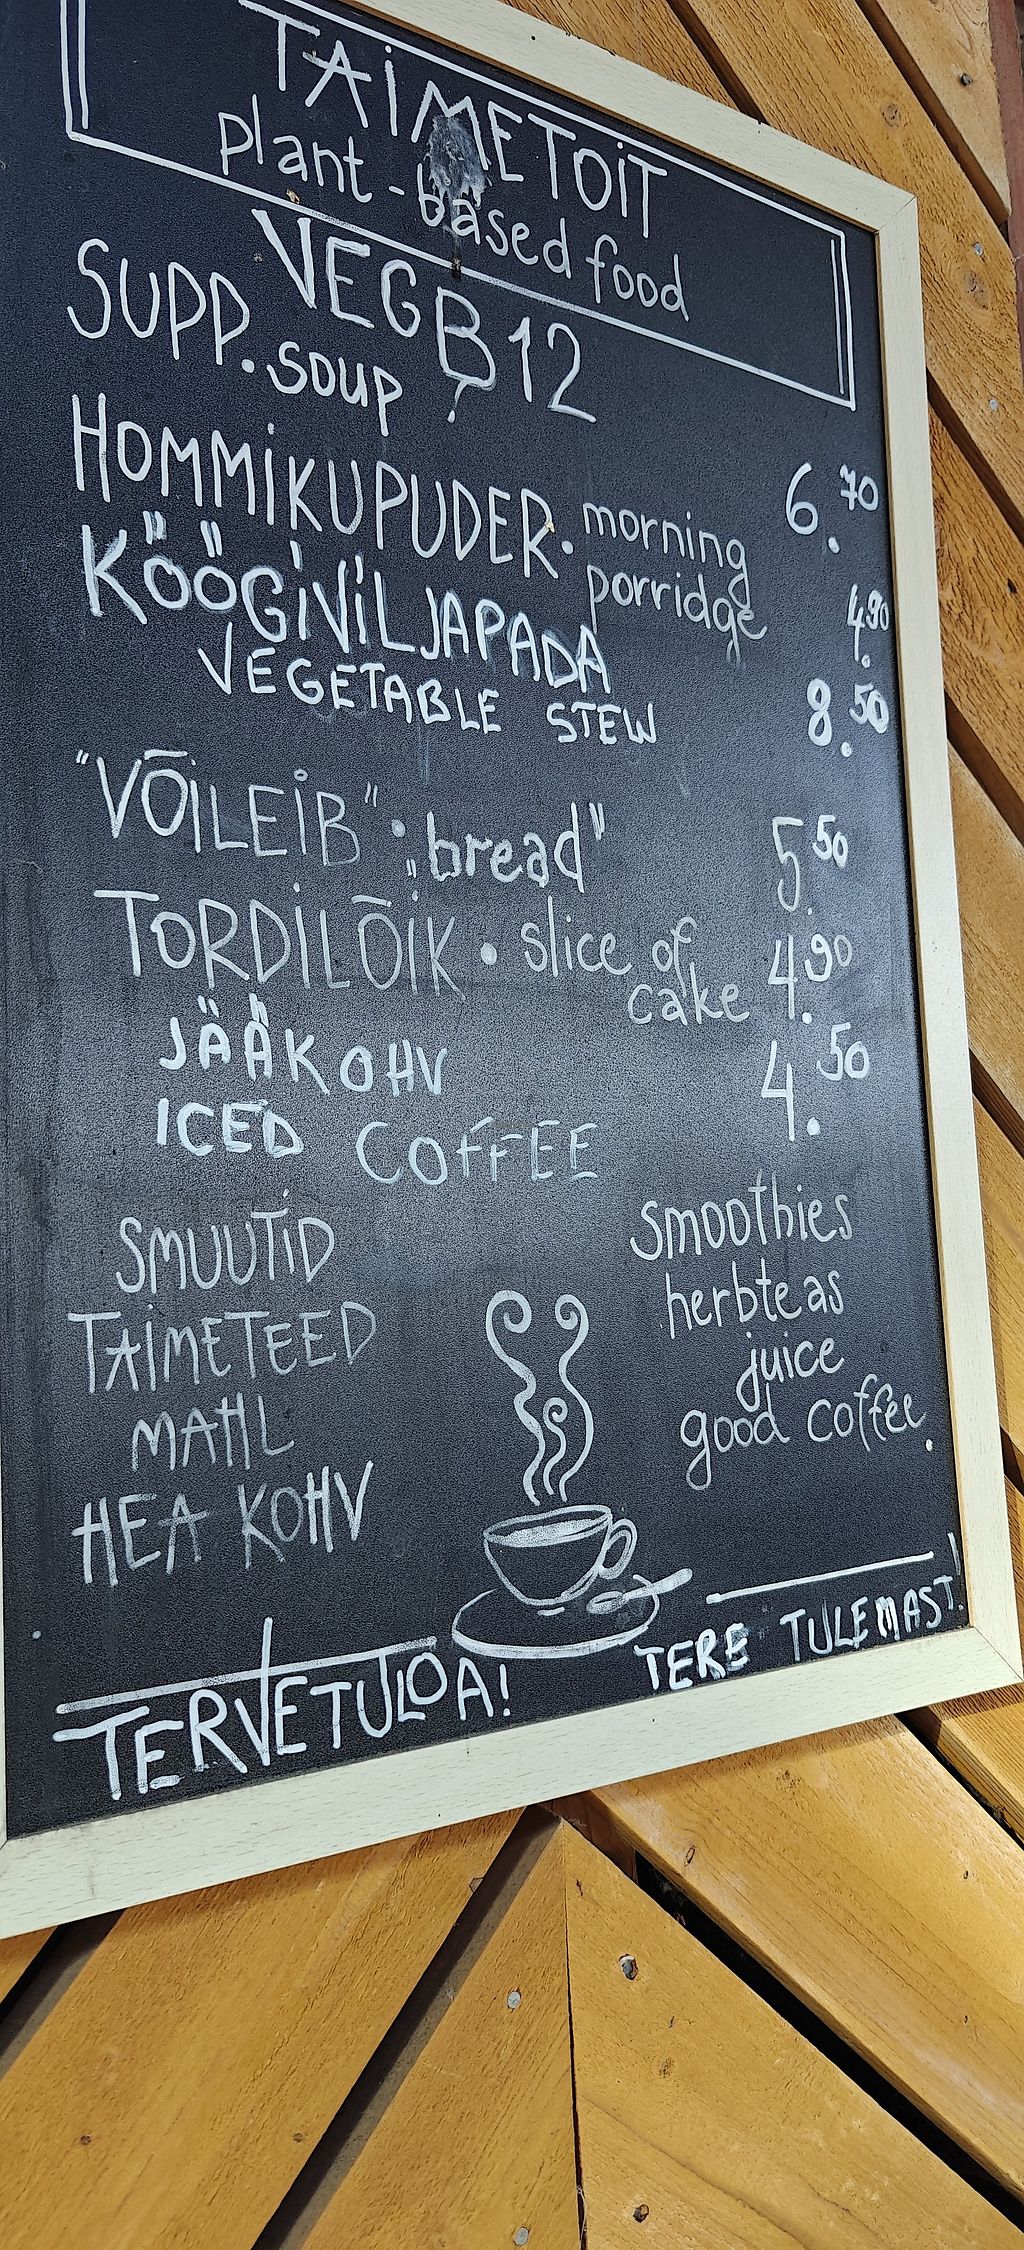 TAIMETOIT
plant-based food
VEGB12
SUPP. soup 6.70
HOMMIKUPUDER. morning
porridge 4.90
KÖÖGIVILJAPADA
VEGETABLE STEW 8.50
"VÕILEIB" • "bread" 5.50
TORDILÕIK • slice of
cake 4.90
JÄÄKOHV 4.50
ICED COFFEE
SMUUTID smoothies
TAIMETEED herbteas
MAHL juice
HEA KOHV good coffee.
TERVETULOA! TERE TULEMAST!